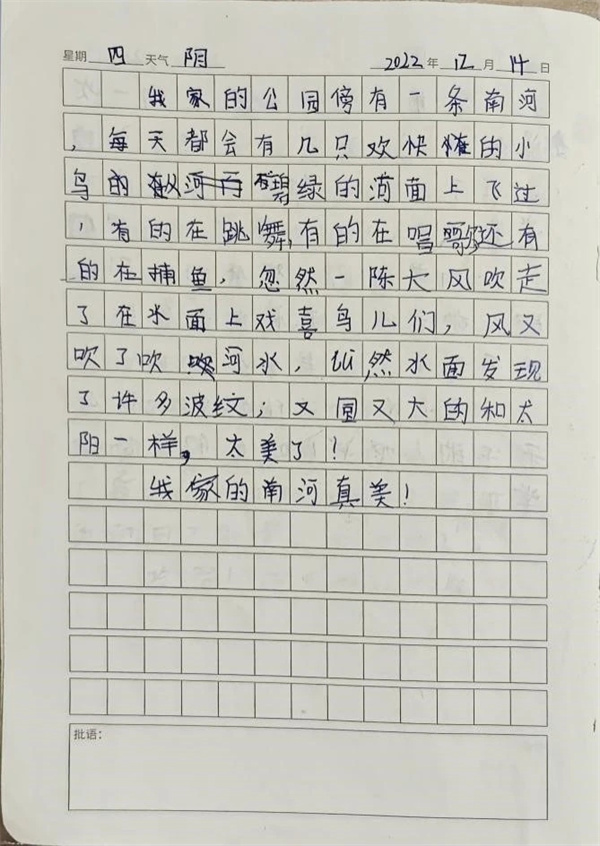 星期 四 天气 阴 2022 年 12 月 14 日
我家的公园傍有一条南河
，每天都会有几只欢快的小
鸟的从碧绿的河面上飞过
，有的在跳舞，有的在唱歌还有
的在捕鱼，忽然一陈大风吹走
了在水面上戏喜鸟儿们，风又
吹了吹河水，然水面发现
了许多波纹；又圆又大的和太
阳一样，太美了！
我家的南河真美！
批语：